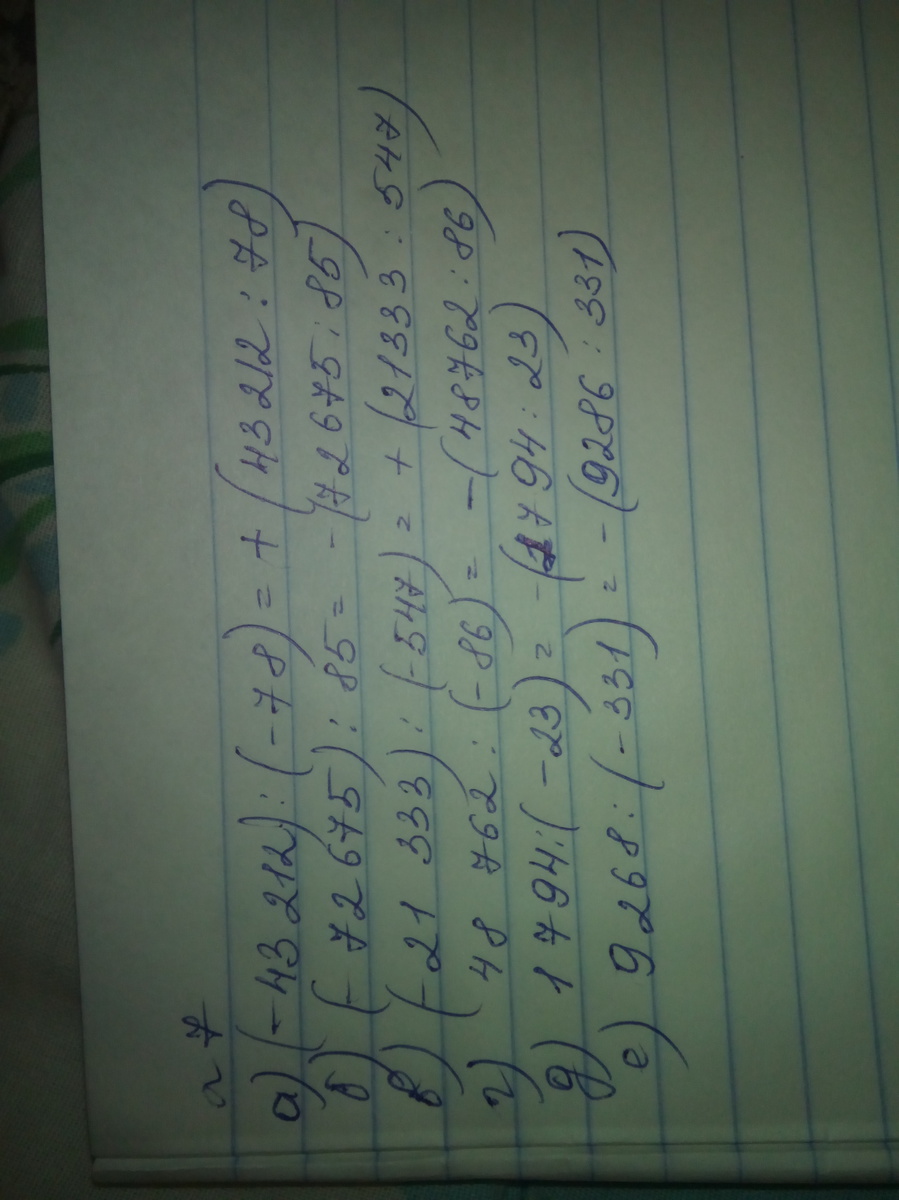 ~ 7
а) (-43 212) : (-78) = + (43212 : 78)
б) (-72 675) : 85 = - (72675 : 85)
в) (-21 333) : (-547) = + (21333 : 547)
г) 48 762 : (-86) = - (48762 : 86)
д) 1794 : (-23) = - (1794 : 23)
е) 9268 : (-331) = - (9286 : 331)